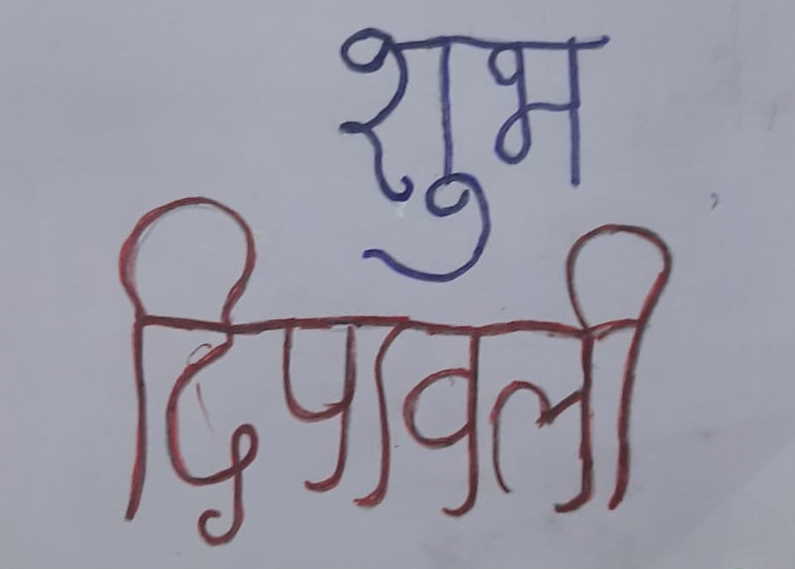 शुभ
दिपावली